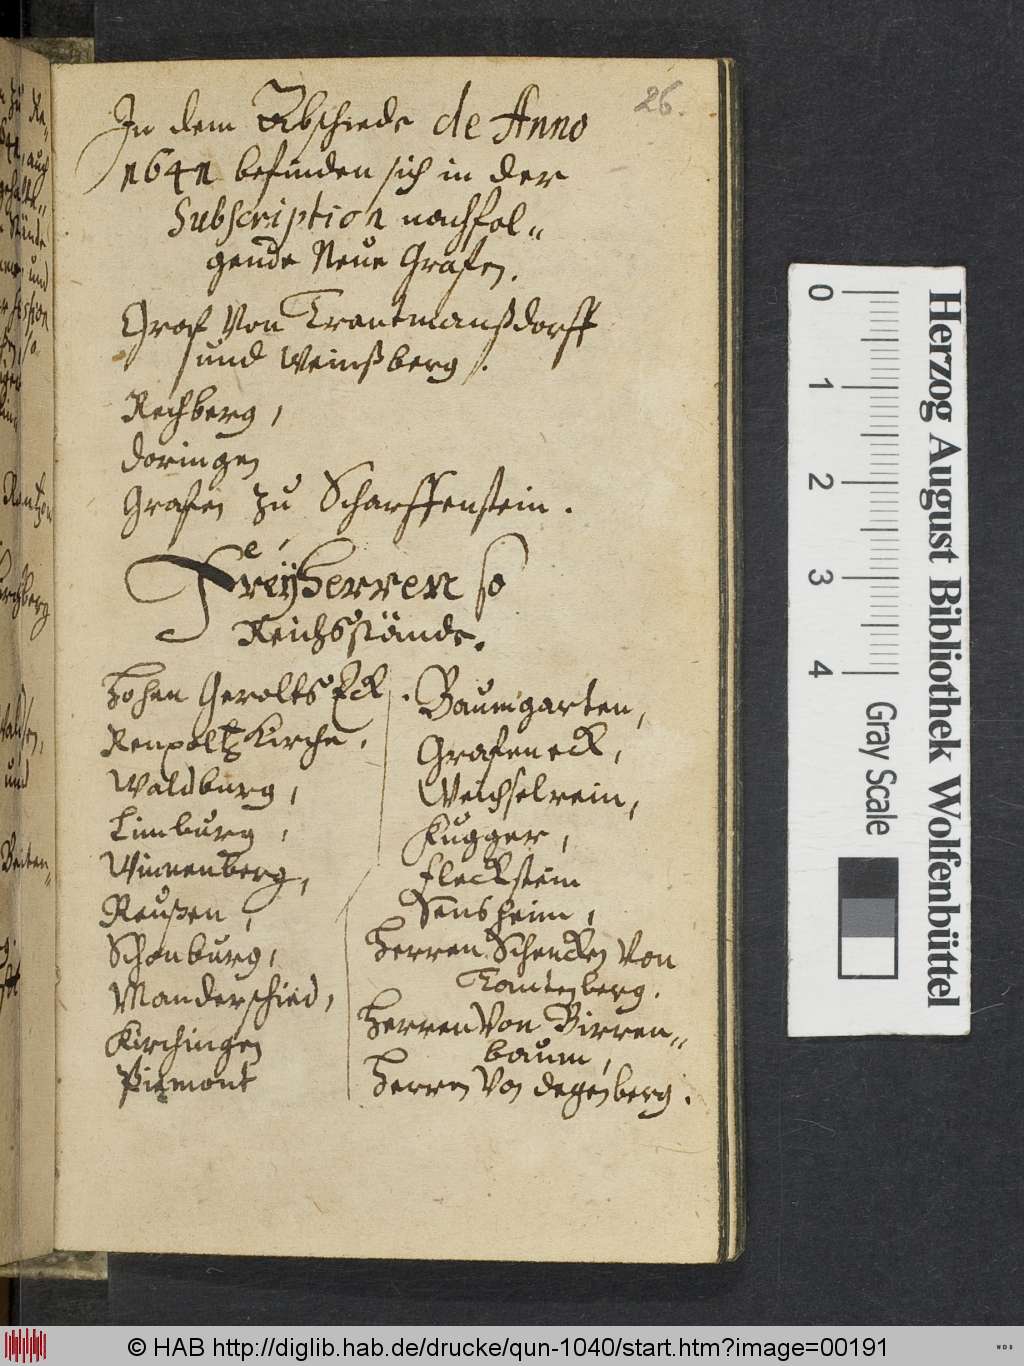 26.
In dem Abschiede de Anno
1641 befinden sich in der
Subscription nachfol„
gende Neue Grafen.
Graf Von Trautmanßdorff
und Weinßberg.
Rechberg,
Döringen
Grafen zu Scharffenstein.
Freÿherren so
Reichsstände.
Hohen Gerolts Eck
Renpoltz Kirche,
Waldburg,
Limburg,
Winnenberg,
Reußen,
Schönburg,
Manderschied,
Kirchingen
Pirmont
Baumgarten,
Grafeneck,
Weichselrein,
Fugger,
Fleckstein
Sensheim,
Herren Schencken Von
Tautenberg.
Herren Von Birren„
baum,
Herren Von Degenberg.
Herzog August Bibliothek Wolfenbüttel
0 1 2 3 4
Gray Scale
© HAB http://diglib.hab.de/drucke/qun-1040/start.htm?image=00191